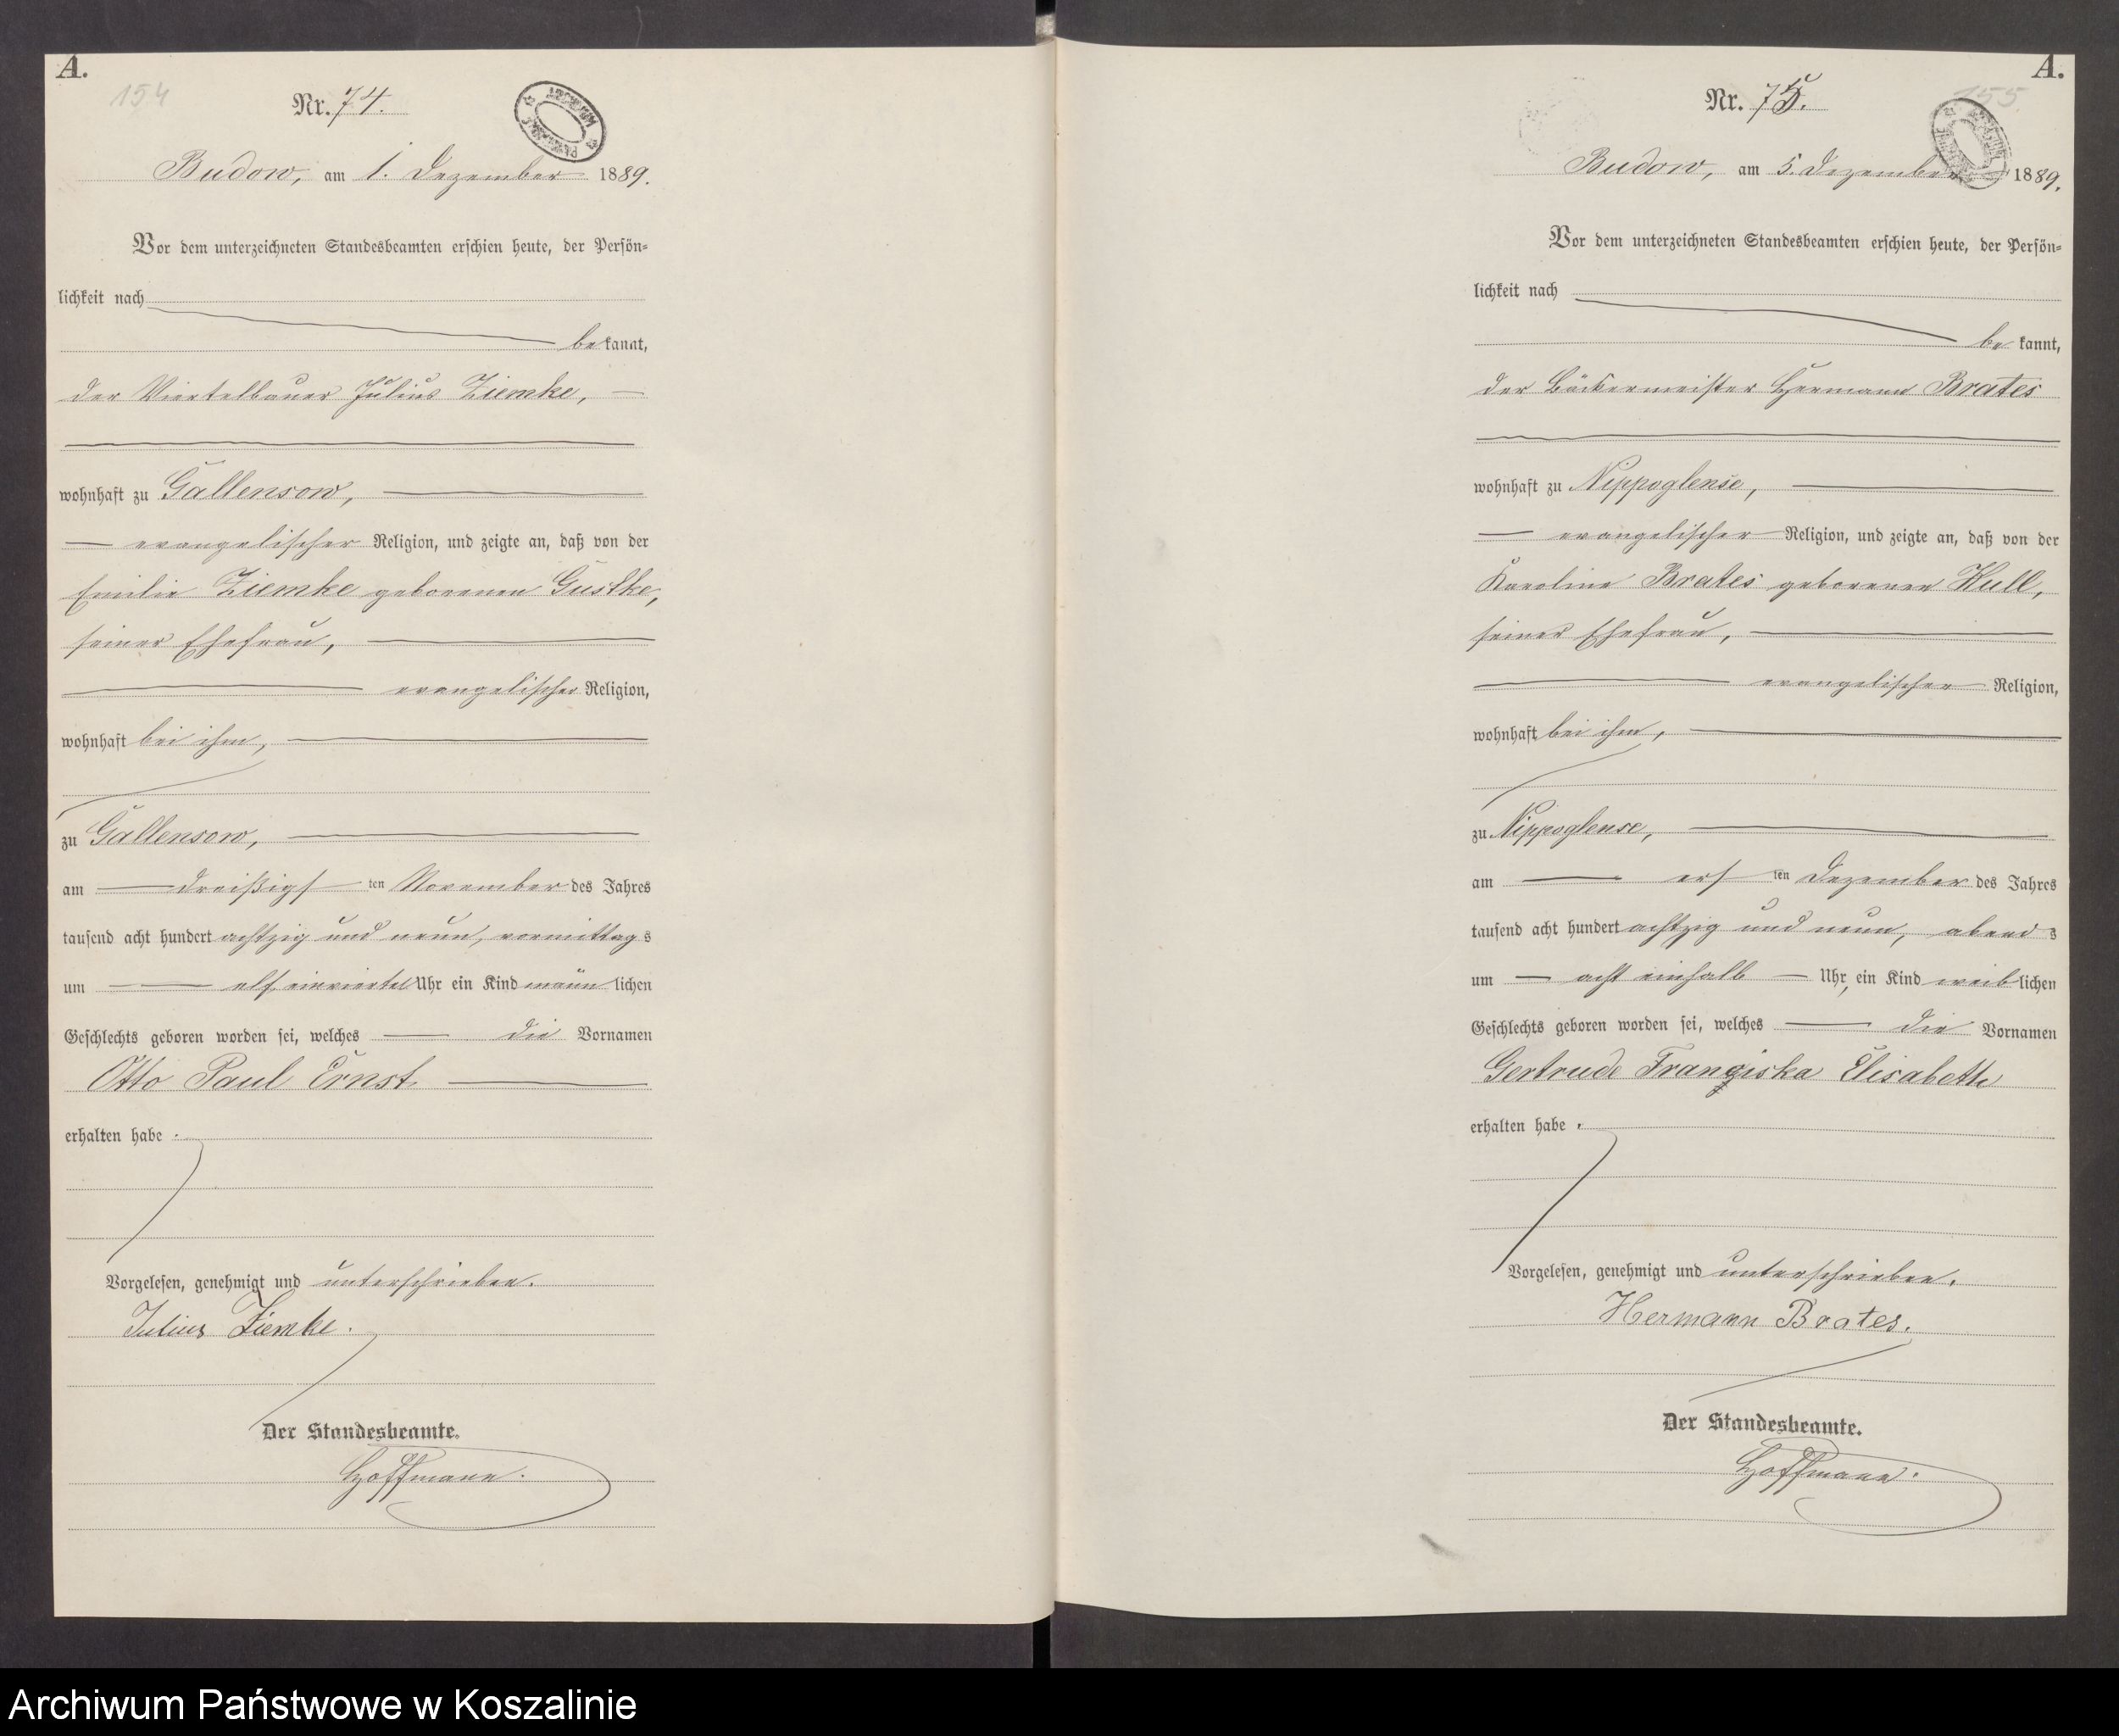 A.
154
Nr. 74.
Budow, am 1. Dezember 1889.
Vor dem unterzeichneten Standesbeamten erschien heute, der Persön=
lichkeit nach
be kannt,
der Viertelbauer Julius Ziemke,
wohnhaft zu Gallensow,
evangelischer Religion, und zeigte an, daß von der
Emilie Ziemke geborenen Gustke,
seiner Ehefrau,
evangelischer Religion,
wohnhaft bei ihm,
zu Gallensow,
am dreißigs ten November des Jahres
tausend acht hundert achtzig und neun, vormittag s
um elf einviertel Uhr ein Kind männ lichen
Geschlechts geboren worden sei, welches die Vornamen
Otto Paul Ernst
erhalten habe .
Vorgelesen, genehmigt und unterschrieben.
Julius Ziemke.
Der Standesbeamte.
Hoffmann.
A.
155.
Nr. 75.
Budow, am 5. Dezember 1889.
Vor dem unterzeichneten Standesbeamten erschien heute, der Persön=
lichkeit nach
be kannt,
der Bäckermeister Hermann Brates
wohnhaft zu Nippoglense,
evangelischer Religion, und zeigte an, daß von der
Karoline Brates geborenen Kull,
seiner Ehefrau,
evangelischer Religion,
wohnhaft bei ihm,
zu Nippoglense,
am ers ten Dezember des Jahres
tausend acht hundert achtzig und neun, abend s
um acht einhalb Uhr, ein Kind weib lichen
Geschlechts geboren worden sei, welches die Vornamen
Gertrude Franziska Elisabeth
erhalten habe .
Vorgelesen, genehmigt und unterschrieben.
Hermann Brates.
Der Standesbeamte.
Hoffmann.
Archiwum Państwowe w Koszalinie